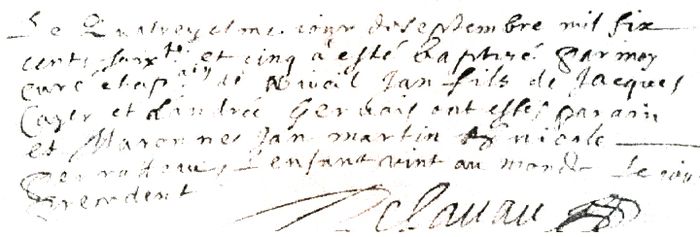 Le Quatreyesme jour de septembre mil six
cents soixte et cinq à esté baptizé par moy
curé de Nieuil Jan fils de Jacques
Cager et dandrée Gervais ont estes parain
et Maronne Jan martin et nicole
lenfant vint au monde le jour
precedent
Delavau